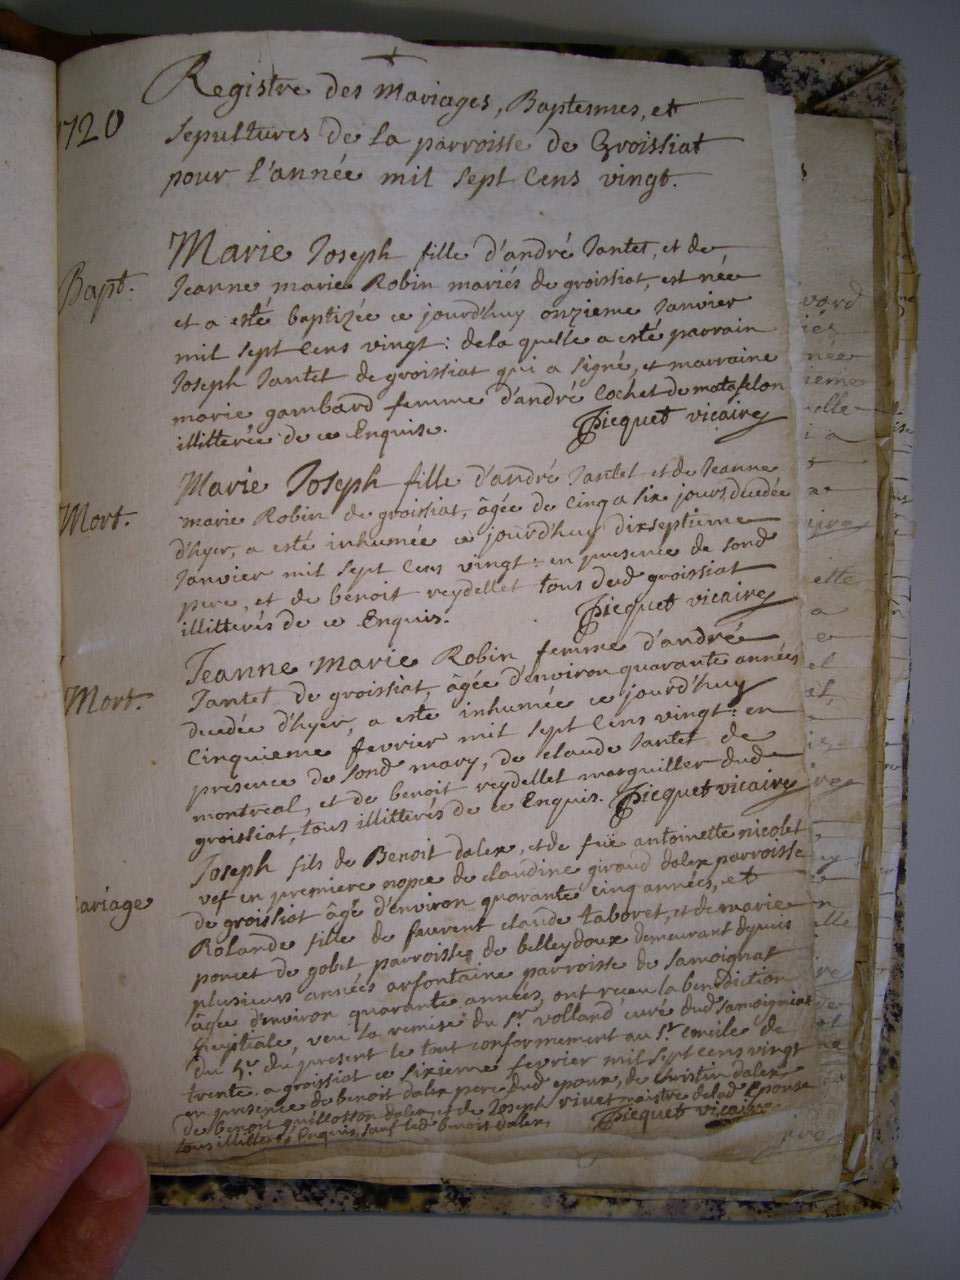 1720
Registre des Mariages, Baptesmes, et
sepultures de la parroisse de Groissiat
pour l'année mil sept Cens vingt.
Bapt.
Marie Joseph fille d'andré Jantet, et de
Jeanne marie Robin mariés de groissiat, est née
et a esté baptizée ce jourd'huy onzieme Janvier
mil sept Cens vingt: de la quelle a esté parrain
Joseph Jantet de groissiat qui a signé, et marraine
marie gambard femme d'andré Cochet de matafelon
illitterée de ce Enquise. Picquet vicaire
Mort.
Marie Joseph fille d'andré Jantet et de Jeanne
marie Robin de groissiat, âgée de Cinq a six jours, decedée
d'hyer, a esté inhumée ce jourd'huy dixseptieme
Janvier mil sept Cens vingt: en presence de sond
pere, et de benoit reydellet tous dud groissiat
illitterés de ce Enquis. Picquet vicaire
Mort.
Jeanne Marie Robin femme d'andré
Jantet de groissiat, âgée d'environ quarante années
decedée d'hyer, a esté inhumée ce jourd'huy
Cinquieme fevrier mil sept Cens vingt: en
presence de sond mary, de claude Jantet de
montreal, et de benoit reydellet marguiller dud
groissiat, tous illitterés de ce Enquis. Picquet vicaire
ariage
Joseph fils de Benoit dalex, et de füe antoinette nicolet
vef en premiere nopce de claudine giraud dalex parroisse
de groissiat âgé d'environ quarante Cinq années, et
Rolande fille de laurent claude taboret, et de marie
poncet de gobet parroisse de belleydoux demeurant depuis
plusieurs années arfontaine parroisse de Samoignat
âgée d'environ quarante années, ont receu la benediction
nuptiale, veu la remise du Sr. volland curé dud Samoigniat
du 4e. du present le tout conformement au St. Concile de
trente. a groissiat ce sixieme fevrier mil sept cens vingt
en presence de benoit dalex pere dud epoux, de Christin dalex
de benoit guillotton dalex, et de Joseph vivet maistre de lad Epouse
tous illitterés Enquis, sauf led benoit dalex. Picquet vicaire